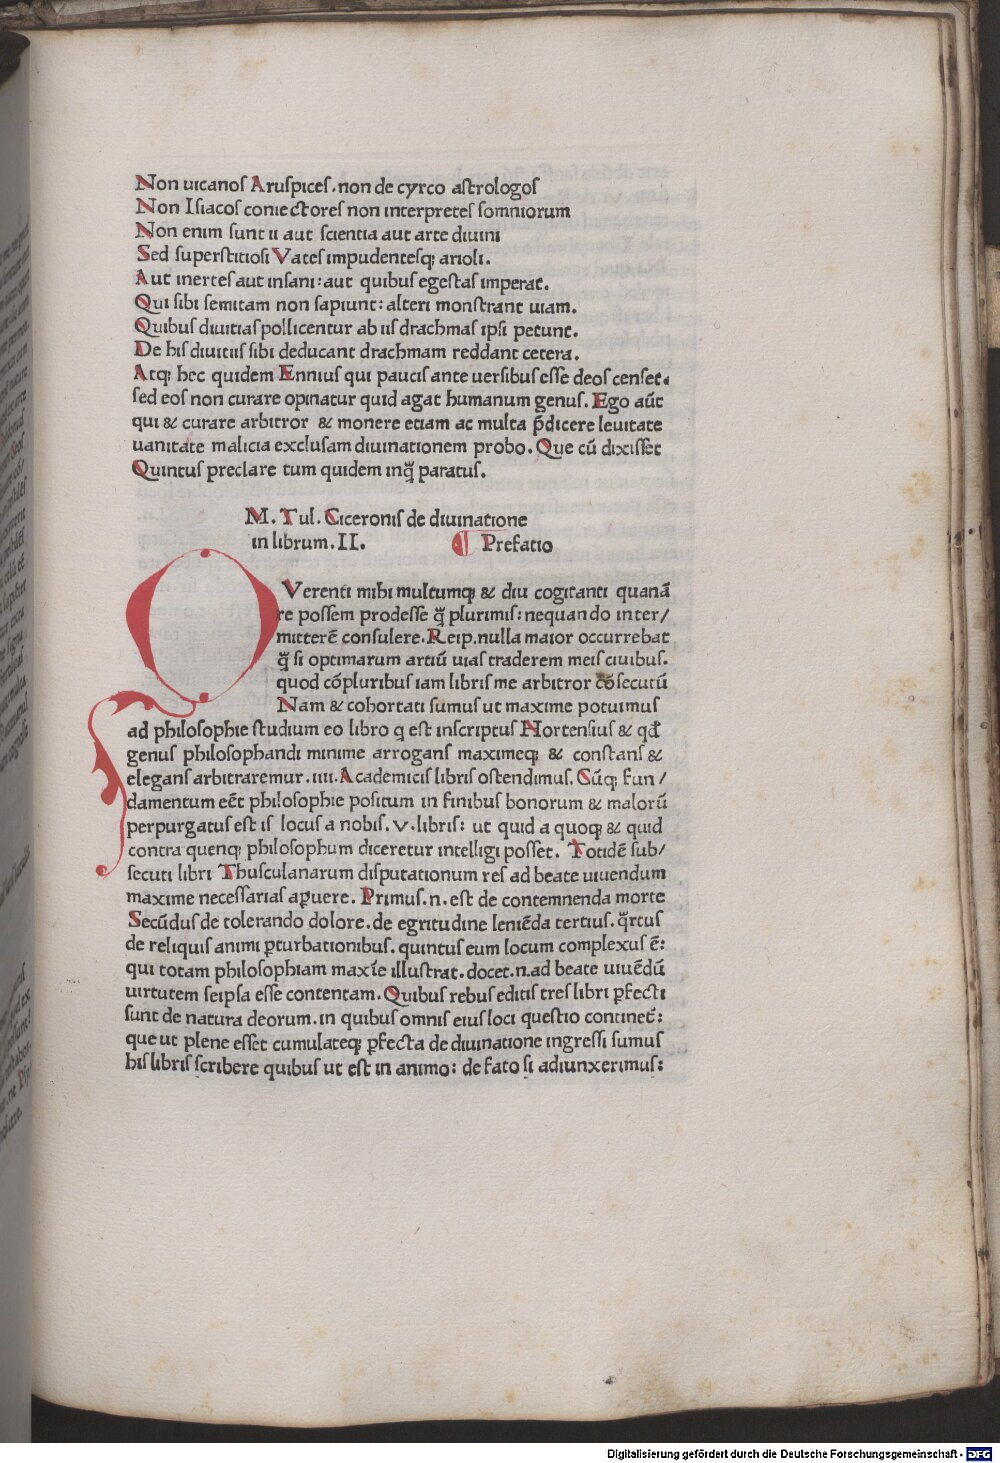 Non uicanos Aruspices. non de cyrco astrologos
Non Isiacos coniectores non interpretes somniorum
Non enim sunt ii aut scientia aut arte diuini
Sed superstitiosi Vates impudentesq; arioli.
Aut inertes aut insani: aut quibus egestas imperat.
Qui sibi semitam non sapiunt: alteri monstrant uiam.
Quibus diuitias pollicentur ab iis drachmas ipsi petunt.
De his diuitiis sibi deducant drachmam reddant cetera.
Atq; hec quidem Ennius qui paucis ante uersibus esse deos censet.
sed eos non curare opinatur quid agat humanum genus. Ego aūt
qui & curare arbitror & monere etiam ac multa p̄dicere leuitate
uanitate malicia exclusam diuinationem probo. Que cū dixisset
Quintus preclare tum quidem inq̄ paratus.
M. Tul. Ciceronis de diuinatione
in librum. II. Prefatio
QVerenti mihi multumq; & diu cogitanti quanā
re possem prodesse q̄ plurimis: nequando inter/
mitterē consulere. Reip. nulla maior occurrebat
q̄ si optimarum artiū uias traderem meis ciuibus.
quod cōpluribus iam libris me arbitror cōsecutū
Nam & cohortati sumus ut maxime potuimus
ad philosophie studium eo libro q est inscriptus Hortensius & qđ
genus philosophandi minime arrogans maximeq; & constans &
elegans arbitraremur. iiii. Academicis libris ostendimus. Cūq; fun/
damentum eēt philosophie positum in finibus bonorum & malorū
perpurgatus est is locus a nobis. v. libris: ut quid a quoq; & quid
contra quenq; philosophum diceretur intelligi posset. Totidē sub/
secuti libri Thusculanarum disputationum res ad beate uiuendum
maxime necessarias aꝑuere. Primus. n. est de contemnenda morte
Secūdus de tolerando dolore. de egritudine leniēda tertius. q̄rtus
de reliquis animi ꝑturbationibus. quintus eum locum complexus ē:
qui totam philosophiam maxīe illustrat. docet. n. ad beate uiuēdū
uirtutem seipsa esse contentam. Quibus rebus editis tres libri ꝑfecti
sunt de natura deorum. in quibus omnis eius loci questio continet̄:
que ut plene esset cumulateq; ꝑfecta de diuinatione ingressi sumus
his libris scribere quibus ut est in animo: de fato si adiunxerimus:
Digitalisierung gefördert durch die Deutsche Forschungsgemeinschaft - DFG